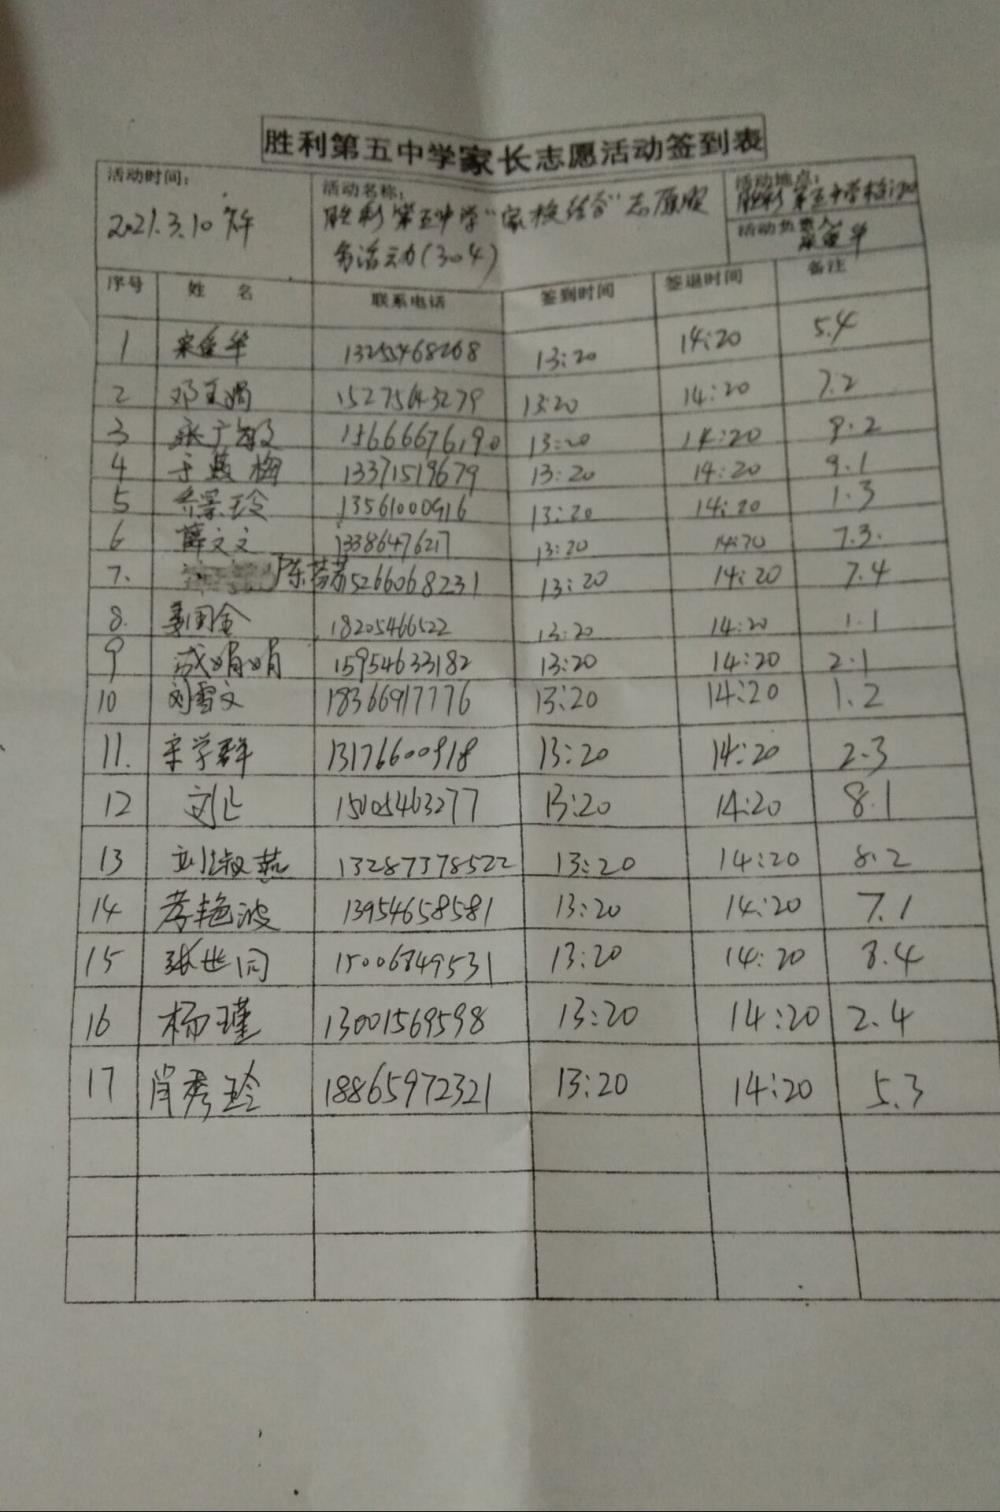 胜利第五中学家长志愿活动签到表
活动时间: 2021.3.10
活动名称: 胜利第五中学“家校结合”志愿服
务活动(304)
活动地点: 胜利第五中学校门口
活动负责人:
序号 姓名 联系电话 签到时间 签退时间 备注
1 13255468268 13:20 14:20 5.4
2 邓美娟 15275643279 13:20 14:20 7.2
3 张广敏 15666676190 13:20 14:20 9.2
4 于燕梅 13371519679 13:20 14:20 9.1
5 乔景玲 13561000916 13:20 14:20 1.3
6 薛文文 13386476217 13:20 14:20 7.3.
7. 陈芬芳 15266068231 13:20 14:20 7.4
8. 姜国金 18205466522 13:20 14:20 1.1
9 成娟娟 15954633182 13:20 14:20 2.1
10 刘雪文 18366917776 13:20 14:20 1.2
11. 宋学群 13176600918 13:20 14:20 2.3
12 15005463277 13:20 14:20 8.1
13 刘淑燕 13287378522 13:20 14:20 8.2
14 李艳波 13954658581 13:20 14:20 7.1
15 张世同 15006849531 13:20 14:20 8.4
16 杨瑾 13001569598 13:20 14:20 2.4
17 肖秀玲 18865972321 13:20 14:20 5.3